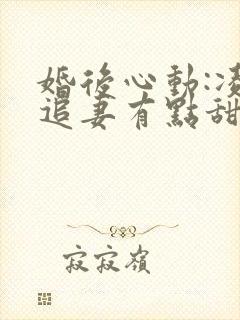 婚後心動:凌
追妻有點甜
寂寂嶺